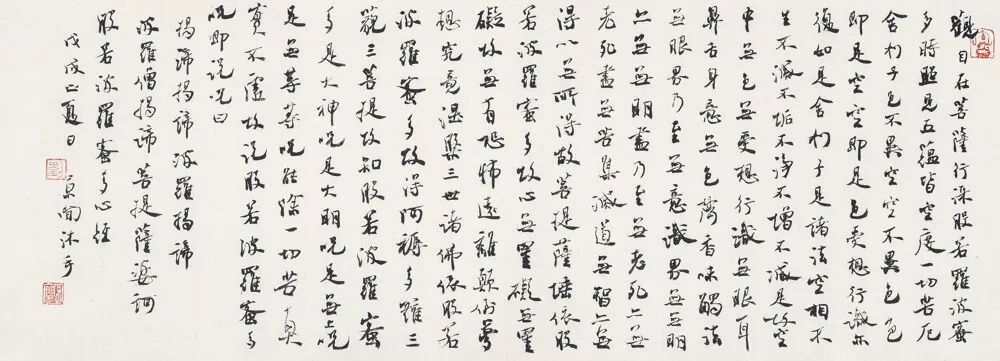 觀自在菩薩行深般若羅波蜜
多時照見五蘊皆空度一切苦厄
舍利子色不異空空不異色色
即是空空即是色受想行識亦
復如是舍利子是諸法空相不
生不滅不垢不淨不增不減是故空
中無色無受想行識無眼耳
鼻舌身意無色聲香味觸法
無眼界乃至無意識界無無明
亦無無明盡乃至無老死亦無
老死盡無苦集滅道無智亦無
得以無所得故菩提薩埵依般
若波羅蜜多故心無罣礙無罣
礙故無有恐怖遠離顛倒夢
想究竟涅槃三世諸佛依般若
波羅蜜多故得阿耨多羅三
藐三菩提故知般若波羅蜜
多是大神咒是大明咒是無上咒
是無等等咒能除一切苦真
實不虛故說般若波羅蜜多
咒即說咒曰
揭諦揭諦波羅揭諦
波羅僧揭諦菩提薩婆訶
般若波羅蜜多心經
戊戌之夏日
沐手